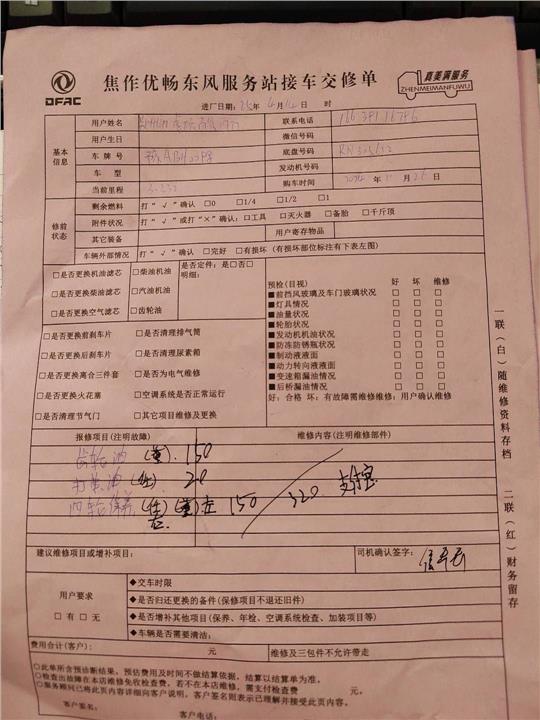 DFAC
焦作优畅东风服务站接车交修单
真美满服务
ZHENMEIMANFUWU
进厂日期： 年 4月 日 时
基本信息
用户姓名
联系电话
用户生日
微信号码
车牌号
底盘号码
车型
发动机号码
当前里程
购车时间 年 月 日
修前状态
剩余燃料 打“√”确认 □0 □1/4 □1/2 □1
附件状况 打“√”或打“×”确认：□工具 □灭火器 □备胎 □千斤顶
其它装备
用户寄存物品
车辆外部情况 打“√”确认 □完好 □有损坏（有损坏部位标注有下表左图）
□是否更换机油滤芯
□柴油机油
是否定件：是□否□
明细：
□是否更换柴油滤芯
□汽油机油
□是否更换空气滤芯
□齿轮油
预检（目视） 好 坏 维修
■前挡风玻璃及车门玻璃状况 □ □ □
■灯具情况 □ □ □
■油量状况 □ □ □
■轮胎状况 □ □ □
■发动机机油状况 □ □ □
■防冻防锈瓶状况 □ □ □
■制动液液面 □ □ □
■动力转向液液面 □ □ □
■变速箱漏油情况 □ □ □
■后桥漏油情况 □ □ □
好：合格 坏：有故障需维修维修：用户确认维修
□是否更换前刹车片 □是否清理排气筒
□是否更换后刹车片 □是否清理尿素箱
□是否更换离合三件套 □是否为电气维修
□是否更换火花塞 □空调系统是否正常运行
□是否清理节气门 □其它项目维修及更换
报修项目（注明故障） 维修内容（注明维修部件）
齿轮油 150
打黄油 20
四轮保养 150 320 支付宝
建议维修项目或增补项目：
司机确认签字：
用户要求
□有□无
◆交车时限
◆是否归还更换的备件（保修项目不退还旧件）
◆是否增补其他项目（保养、年检、空调系统检查、加装项目等）
◆车辆是否需要清洁：
费用合计（客户）： 元
维修及三包件不允许带走
○此单所含预诊断结果，预估费用及时间不做结算依据，结算以结算单为准。
○检查出故障在本店维修免收检查费，若不在本店维修，需支付检查费 元。
○服务顾问已将此页内容详细向客户说明，客户签名则表示已理解并接受此页内容。
客户签名： 客户电话：
一联（白）随维修资料存档 二联（红）财务留存